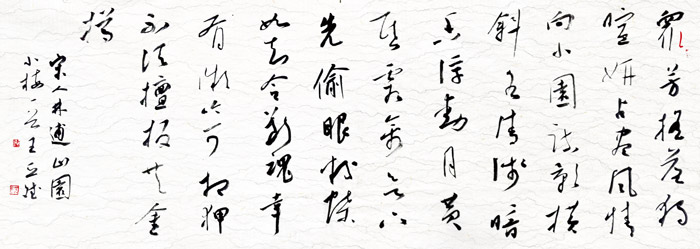 眾芳摇落獨
暄妍占盡風情
向小園疏影横
斜水清淺暗
香浮動月黄
昏霜禽欲下
先偷眼粉蝶
如知合斷魂幸
有微吟可相狎
不須檀板共金
樽
宋人林逋山園
小梅 王